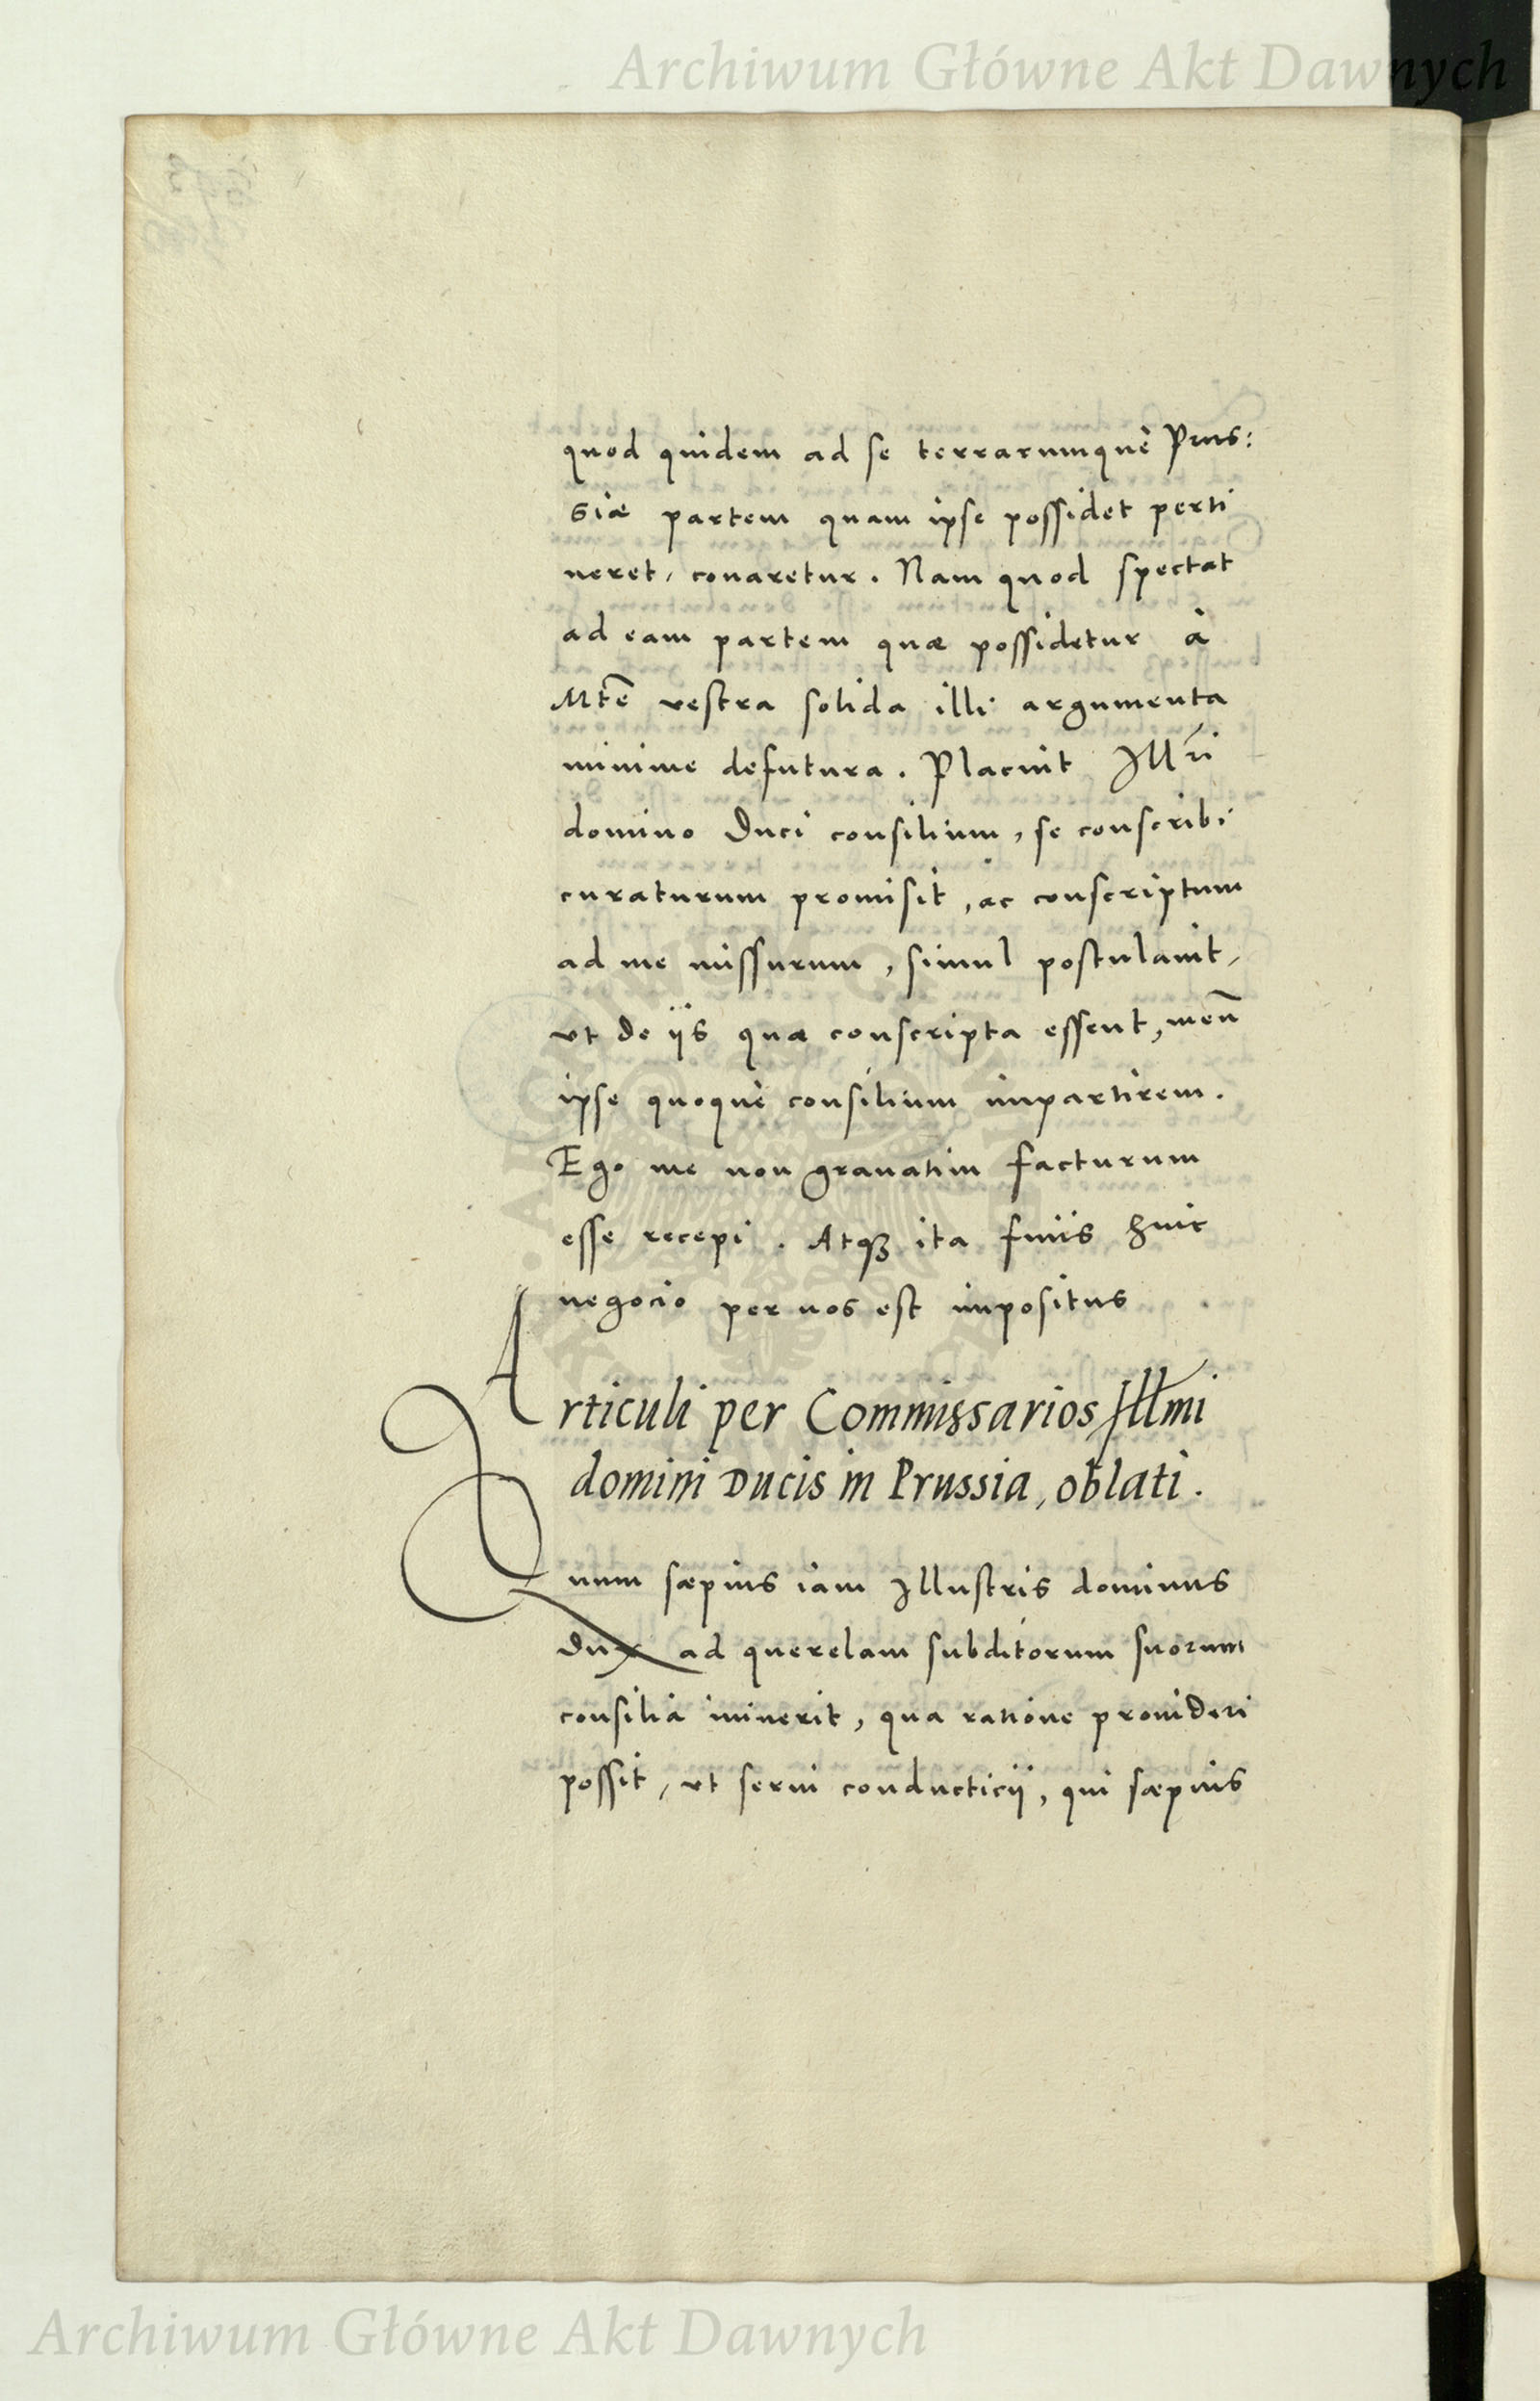 Archiwum Główne Akt Dawnych
quod quidem ad se terrarumquè Prus:
siæ partem quam ipse possidet perti
neret, conaretur. Nam quod spectat
ad eam partem quæ possidetur à
Mte͂ vestra solida illi argumenta
minime defutura. Placuit Illri
domino Duci consilium, se conscribi
curaturum promisit, ac conscriptum
ad me missurum, simul postulauit,
vt de ijs quæ conscripta essent, meũ
ipse quoquè consilium impartirem.
Ego me non grauatim facturum
esse recepi. Atqȝ ita finis huic
negocio per nos est impositus.
Articuli per Commissarios Illmi
domini Ducis in Prussia, oblati.
Quum sæpius iam Illustris dominus
Dux ad querelam subditorum suorum
consilia iniuerit, qua ratione prouideri
possit, vt serui conducticij, qui sæpius
Archiwum Główne Akt Dawnych